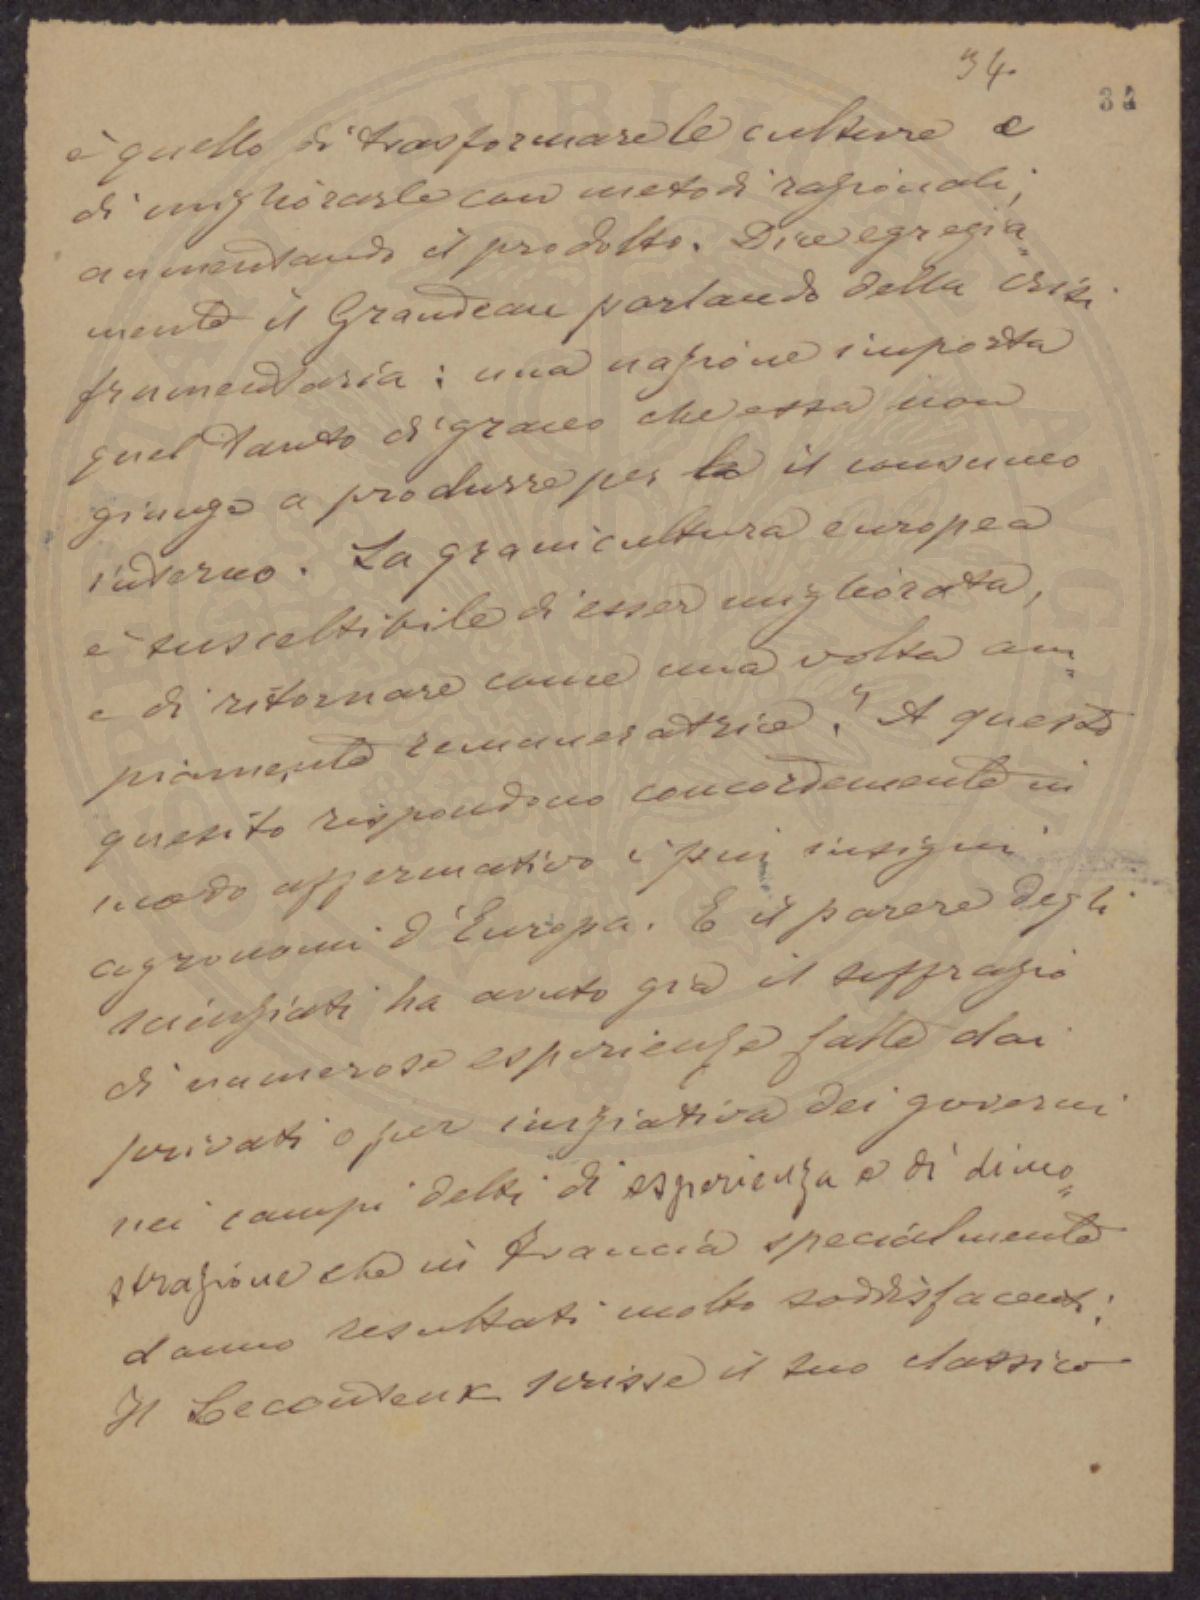 34.
34
è quello di trasformare le culture e
di migliorarle con metodi razionali,
aumentando il prodotto. Dice egregia=
mente il Grandeau parlando della crisi
frumentaria: una nazione importa
quel tanto di grano che essa non
giunge a produrre per la il consumo
interno. La granicultura europea
è suscettibile di esser migliorata,
e di ritornare come una volta am=
piamente remuneratrice." A questo
quesito rispondono concordemente in
modo affermativo i più insigni
agronomi d'Europa. E il parere degli
scienziati ha avuto già il suffragio
di numerose esperienze fatte dai
privati o per iniziativa dei governi
nei campi detti di esperienza e di dimo=
strazione che in Francia specialmente
danno resultati molto soddisfacenti;
Il Lecouteux scrisse il suo classico